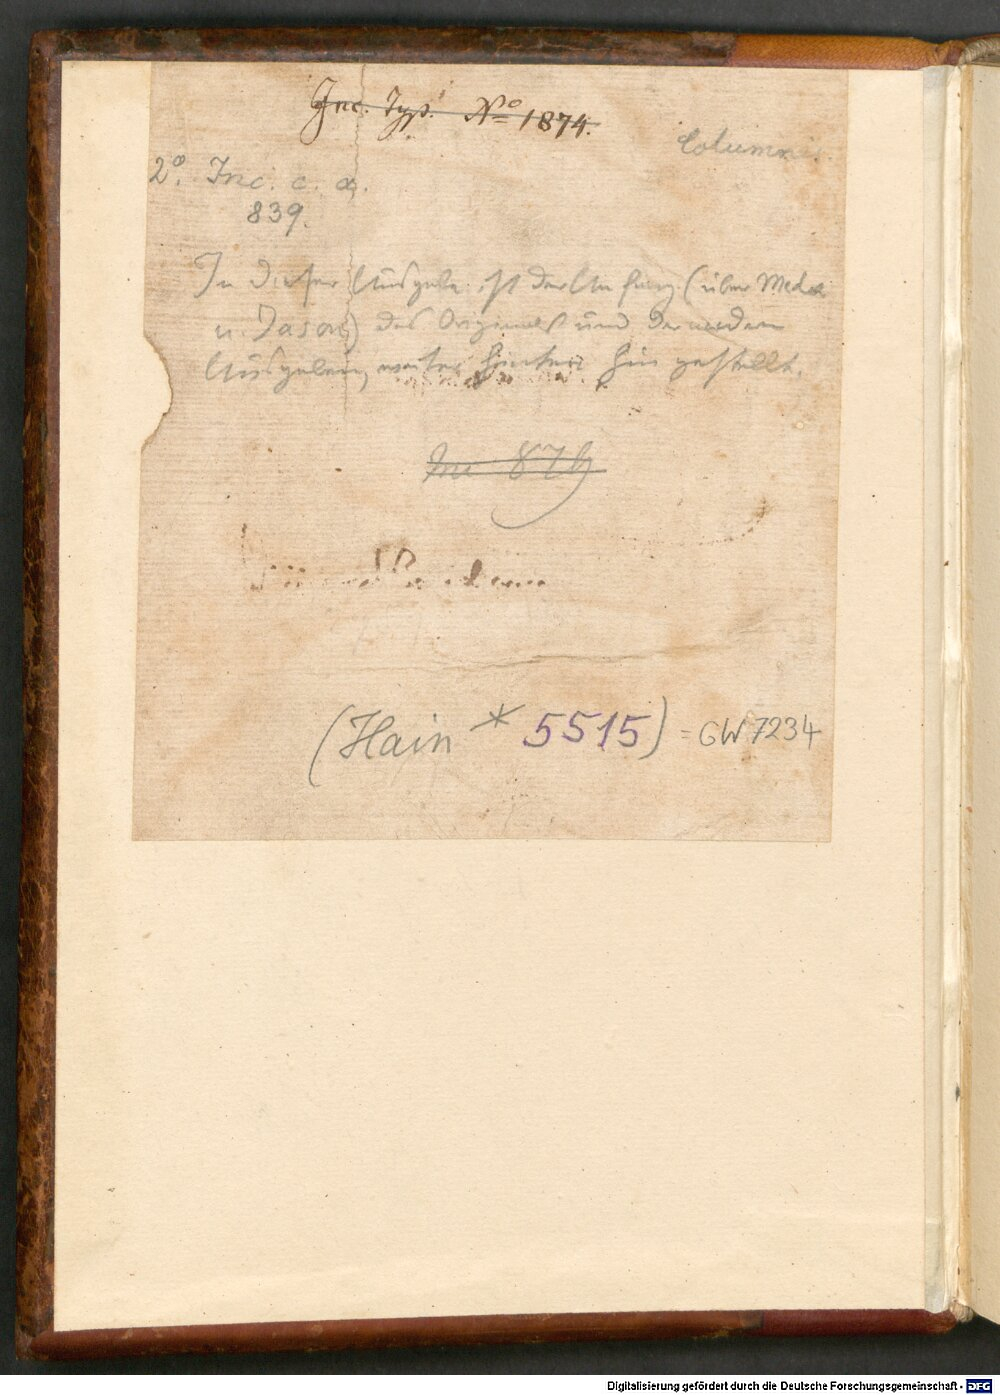 Inc. Typ. No 1874.
Columna.
2°. Inc. c. a.
839.
In dieser Ausgabe ist der Anfang (über Medea
u. Jason) des Originals und der andern
Ausgaben, weiter hinten hin gestellt.
(Hain * 5515) = GW 7234
Digitalisierung gefördert durch die Deutsche Forschungsgemeinschaft - DFG